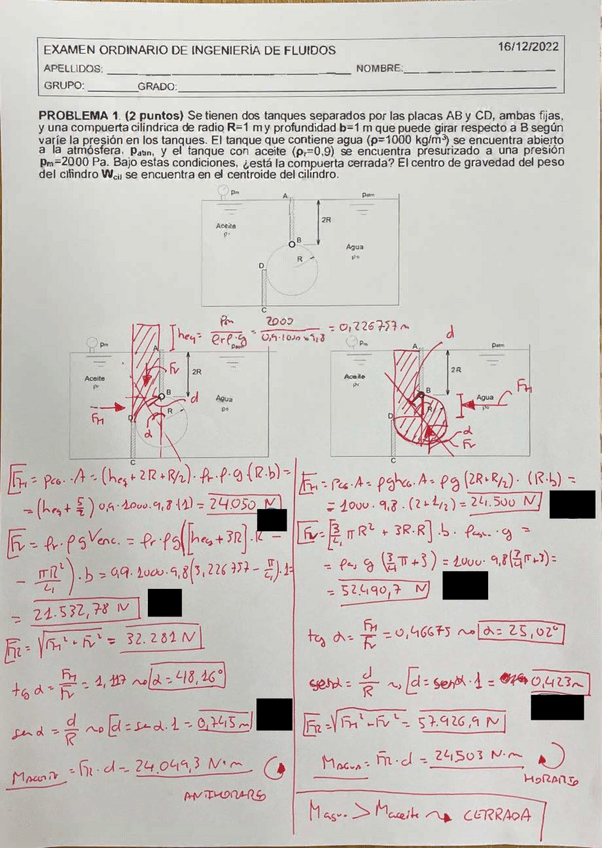 EXAMEN ORDINARIO DE INGENIERÍA DE FLUIDOS 16/12/2022
APELLIDOS: NOMBRE:
GRUPO: GRADO:
PROBLEMA 1. (2 puntos) Se tienen dos tanques separados por las placas AB y CD, ambas fijas,
y una compuerta cilíndrica de radio R=1 m y profundidad b=1 m que puede girar respecto a B según
varíe la presión en los tanques. El tanque que contiene agua (ρ=1000 kg/m³) se encuentra abierto
a la atmósfera, p_atm, y el tanque con aceite (ρ_r=0,9) se encuentra presurizado a una presión
p_m=2000 Pa. Bajo estas condiciones, ¿está la compuerta cerrada? El centro de gravedad del peso
del cilindro W_cil se encuentra en el centroide del cilindro.
pm A patm
Aceite
ρr
2R
B
Agua
ρa
R
D
C
heq = Pm / ρr ρ·g = 2000 / 0,9·1000·9,8 = 0,226757 m
pm A
Aceite
Fv
2R
B
d
Agua
ρa
FH
R
D
α
C
pm A patm
d
Aceite
ρr
2R
B
Agua
FH
R
D
α
Fv
C
FH = ρcG · A = (heq + 2R + R/2) · ρr · ρ · g (R·b) =
= (heq + 5/2) 0,9 · 1000 · 9,8 (1) = 24.050 N
Fv = ρr · ρ g Venc. = ρr · ρg ([heq + 3R] · R −
− πR²/4) · b = 0,9 · 1000 · 9,8 (3,226757 − π/4) · 1 =
= 21.532,78 N
FR = √FH² + Fv² = 32.281 N
tg α = FH/Fv = 1,117 → α = 48,16°
sen α = d/R → d = sen α · 1 = 0,745 m
Maceite = FR · d = 24.049,3 N·m
ANTIHORARIO
FH = ρcG · A = ρghcG · A = ρg (2R + R/2) · (R·b) =
= 1000 · 9,8 · (2+1/2) = 24.500 N
Fv = [3/4 πR² + 3R·R] · b · ρagua · g =
= ρa g (3/4 π + 3) = 1000 · 9,8 (3/4 π + 3) =
= 52.490,7 N
tg α = FH/Fv = 0,46675 → α = 25,02°
senα = d/R → d = senα · 1 = 0,423 m
FR = √FH² − Fv² = 57.926,9 N
MAGUA = FR · d = 24,503 N·m
HORARIO
Magua > Maceite → CERRADA